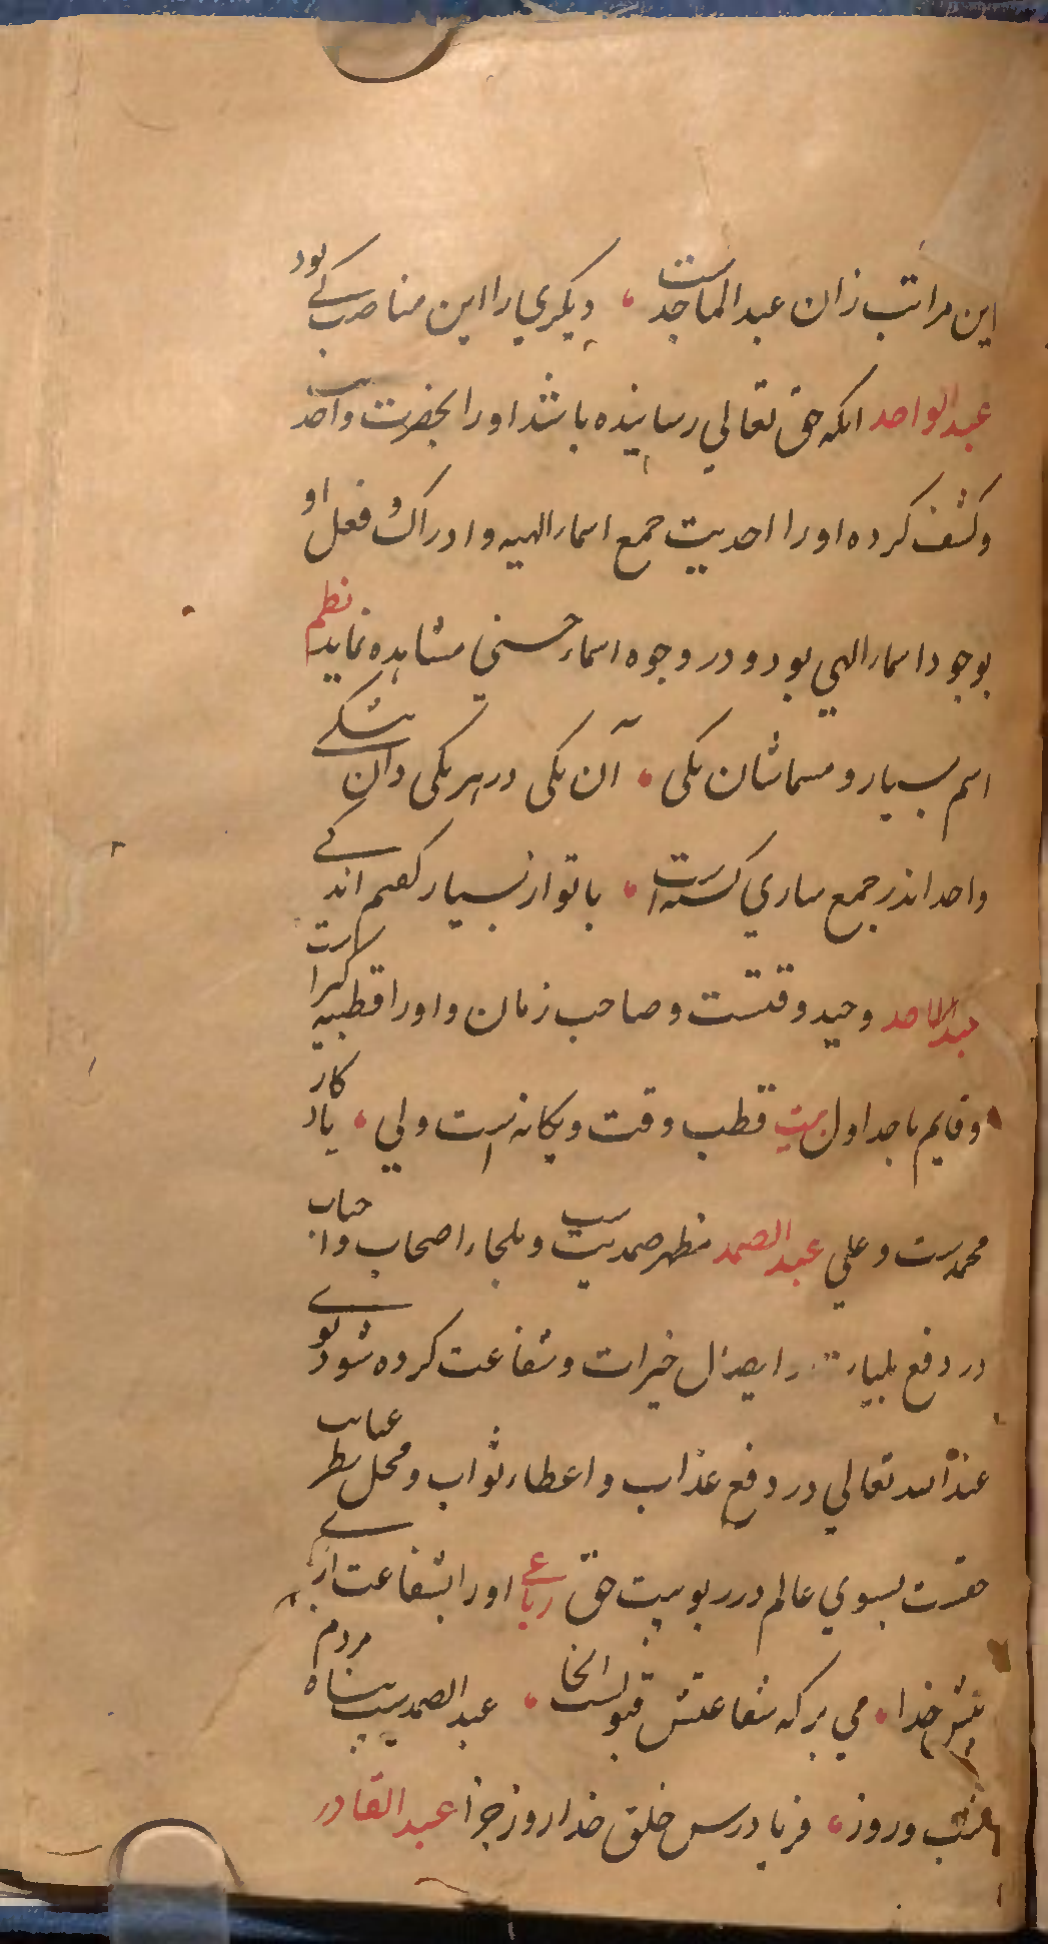 این مراتب زان عبدالماجدست ، دیگری را این مناصب کے بود
عبدالواحد انکه حق تعالی رسانیده باشد اورا بحضرت واحدیت
وکشف کرده اورا احدیت جمع اسماء الهیه و ادراک و فعل او
بوجود اسماء الهی بود و در وجوه اسماء حسنی مشاهده نماید نظم
اسم بسیار و مسماشان یکی ، آن یکی در هر یکی دان بیشکے
واحد اندر جمع ساری کشته است ، با تو از بسیار کفتم اندکے
عبدالاحد وحید وقتست و صاحب زمان و اورا قطبیه کبراست
و قایم باحد اول بیت قطب وقت و یکانه است ولی ، یادکار
محمدست و علی عبدالصمد مظهر صمدیت و ملجاء اصحاب و احباب
در دفع بلیات و ایصال خیرات و شفاعت کرده شود بوے
عندالله تعالی در دفع عذاب و اعطاء ثواب و محل نظر عنایت
حضرت بسوی عالم در ربوبیت حق رباعے اورا بشفاعت ارے
پیش خدا ، می بر که شفاعتش قبولست انجا ، عبدالصمدست پناه مردم
شب و روز ، فریادرس خلق خدا روز جزا عبدالقادر